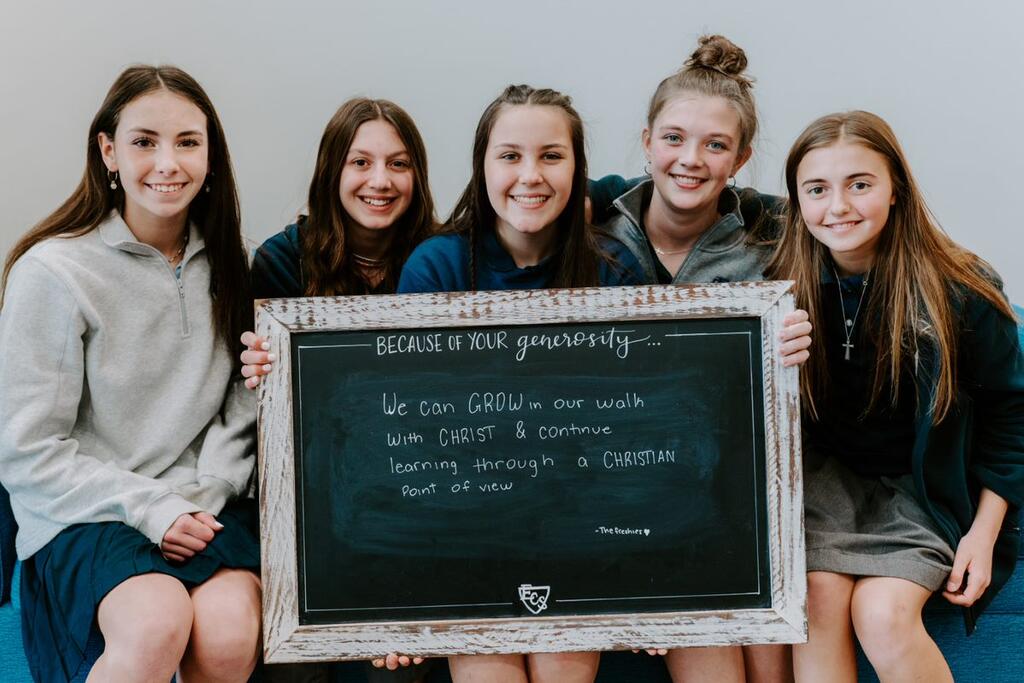 BECAUSE OF YOUR generosity...
We can GROW in our walk
with CHRIST & continue
learning through a CHRISTIAN
point of view
-The freshies ♥
ECS